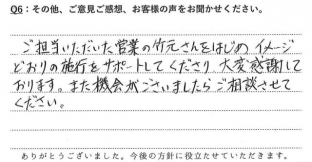 Q6：その他、ご意見ご感想、お客様の声をお聞かせください。
ご担当いただいた営業の竹元さんをはじめ イメージ
どおりの施行をサポートしてくださり 大変感謝して
おります。また機会がございましたらご相談させて
ください。
ありがとうございました。今後の方針に役立たせていただきます。